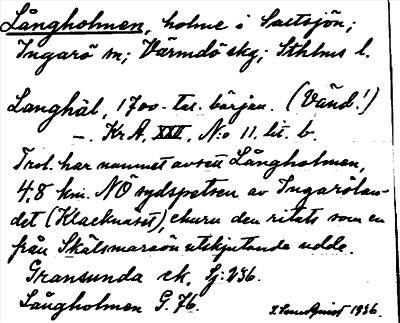 Långholmen, holme i Saltsjön;
Ingarö sn; Värmdö skg; Sthlms l.
Langhäl, 1700-tal. början. (Vänd!)
–. KrA, XXII, N:o 11. lit. b.
Trol. har namnet avsett Långholmen,
4,8 km. NÖ sydspetsen av Ingarölan-
det (Klacknäset), ehuru den ritats som en
från Skälsmaraön utskjutande udde.
Gransunda ek. Sj: 236.
Långholmen G. 76.
1936.